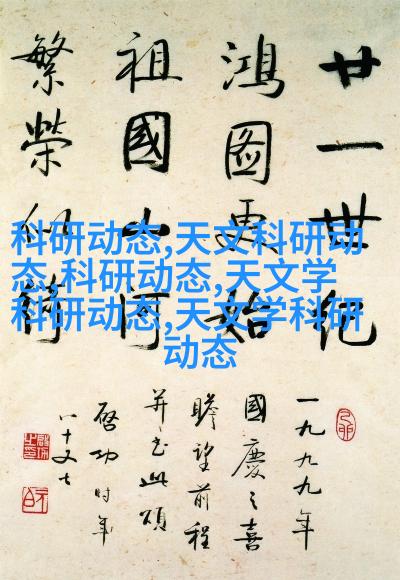 廿一世紀
鴻圖更始
祖國山河
繁榮似錦
科研动态,天文科研动
态,科研动态,天文学
科研动态,天文学科研
动态
一九九九年
國慶之喜
瞻望前程
并書此頌
啓功時年
八十又七